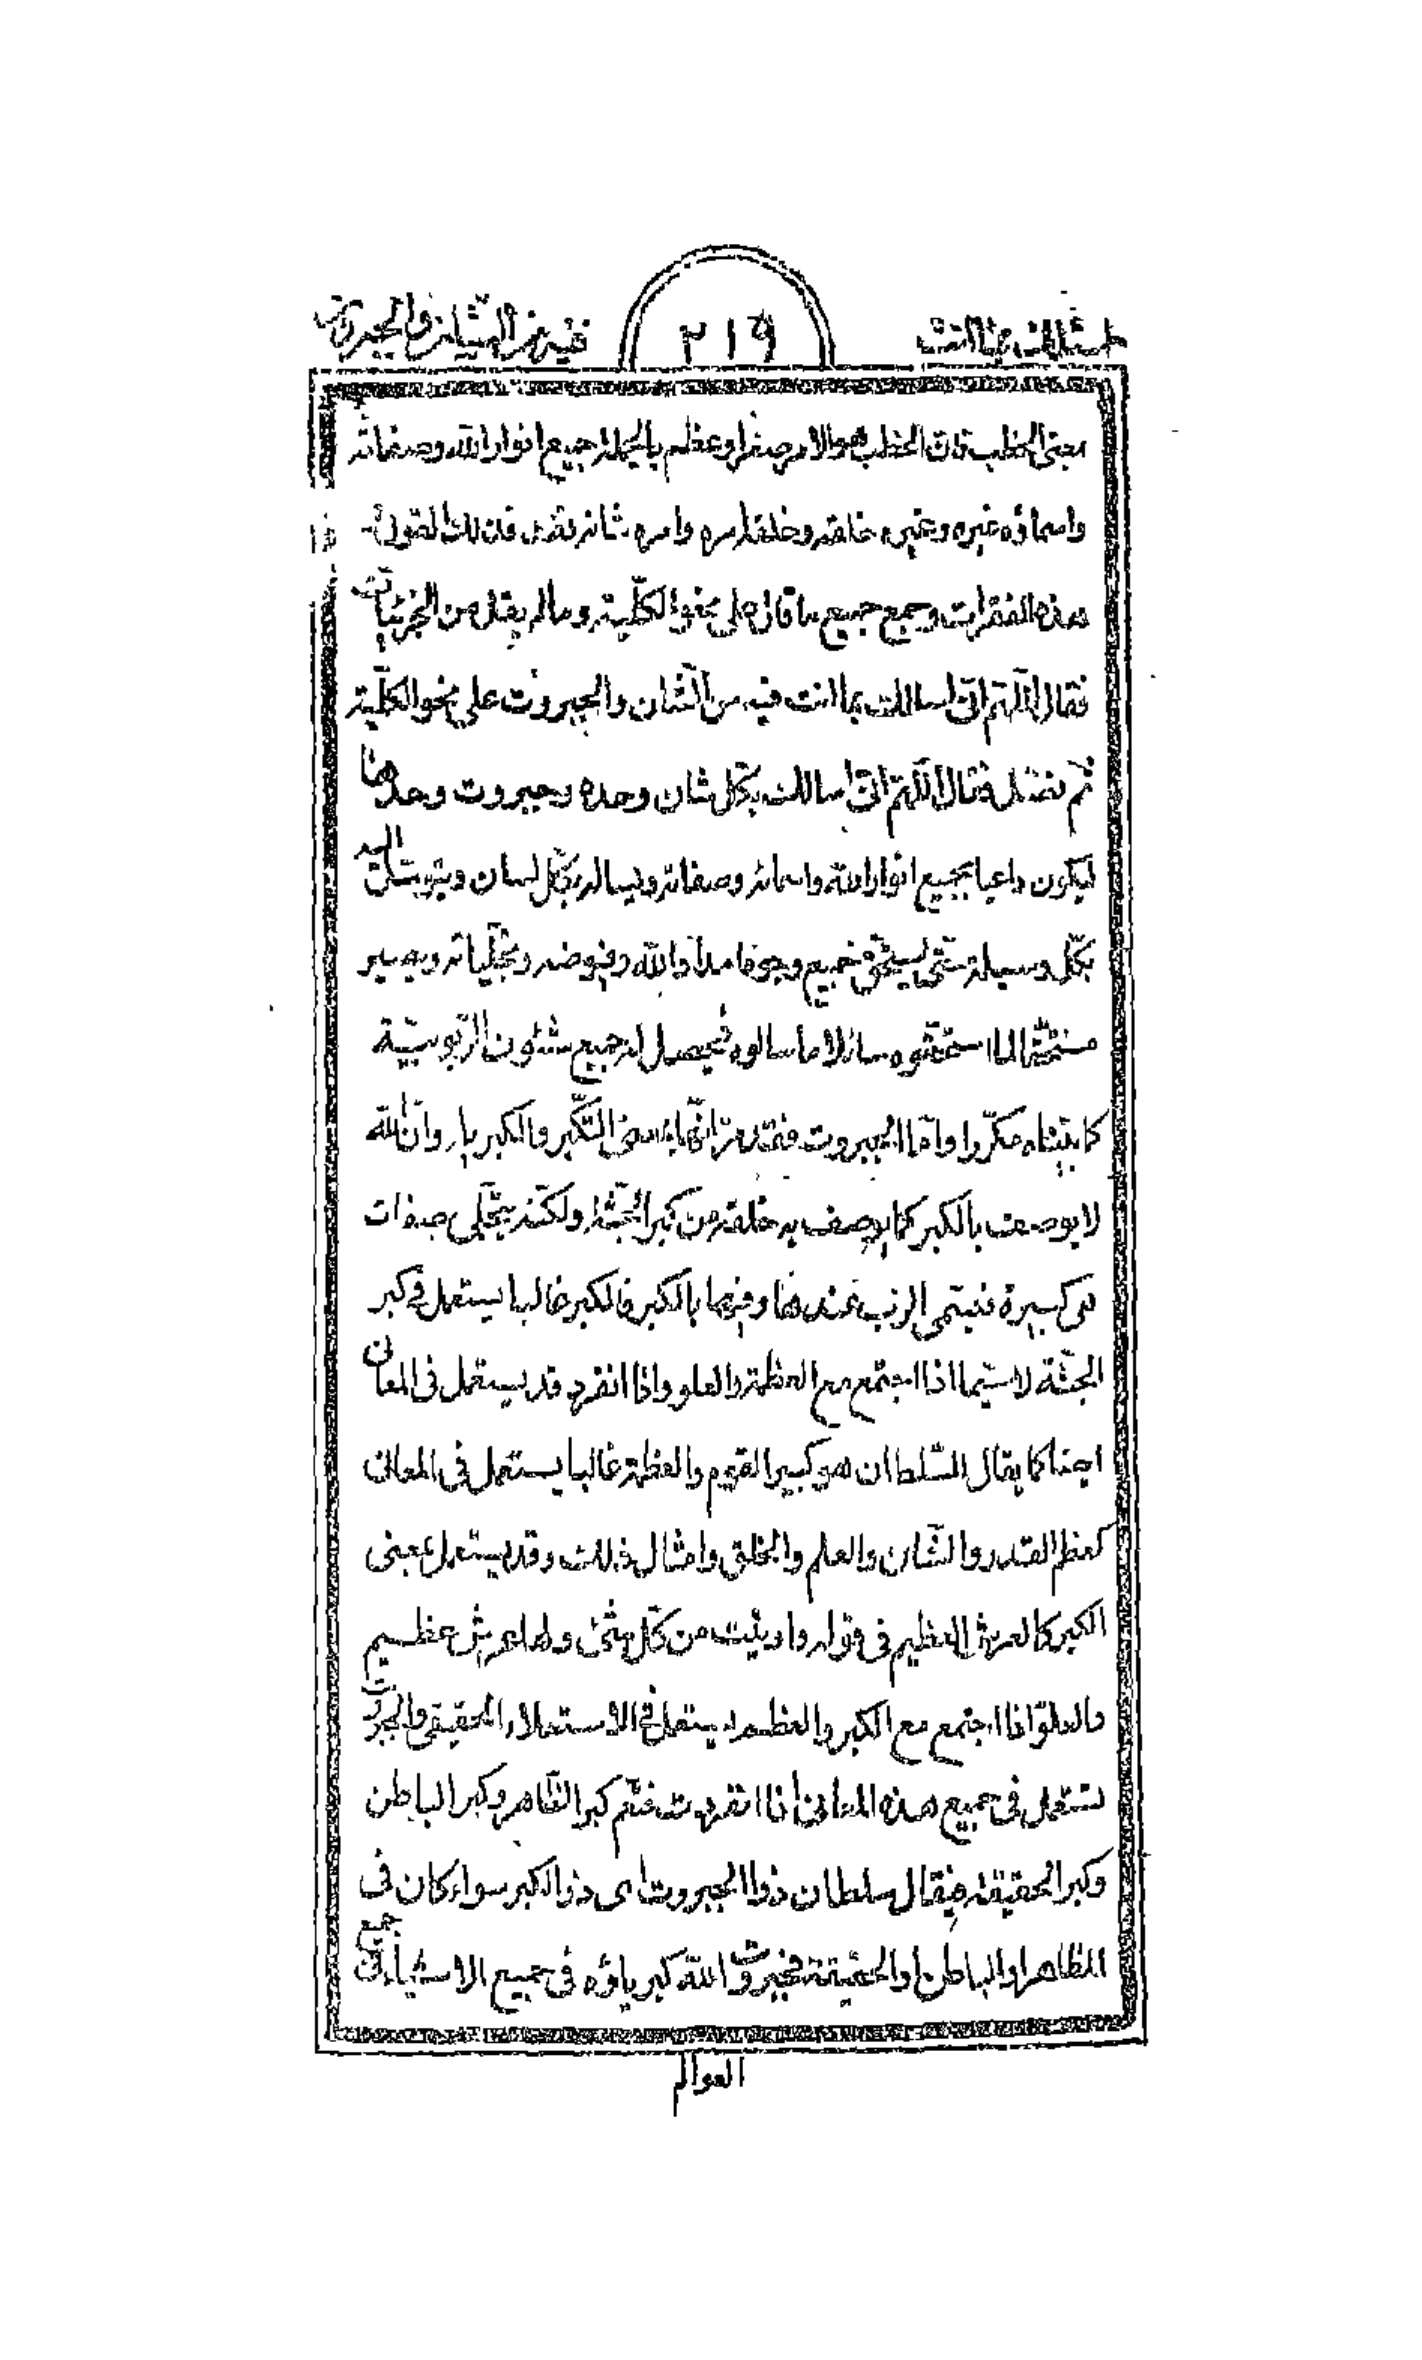 اسئلك بما انت
٢١٩
فيه من الشان والجبروت
بمعنى الخطب فان الخطب هو الامر صغر او عظم بالجملة جميع انوار الله وصفاته
واسماؤه غيره وغيره خلقه وخلقه امره وامره شانه
هذه الفقرات وجمع جميع ما قال على نحو الكلّية وما لم يقل من الجزئيات
فقال اللّهم انّى اسالك بما انت فيه من الشّان والجبروت على نحو الكلّية
ثم فصّل فقال اللّهم انّى اسالك بكلّ شان وحده وجبروت وحدها
ليكون داعيا بجميع انوار الله واسمائه وصفاته ويساله بكلّ لسان ويتوسّل اليه
بكلّ وسيلة حتّى يستحقّ جميع وجوه امداد الله وفيوضه وتجلّياته ويصير
مستحقّا لما استحقّوه سائلا ما سالوه فيحصل له جميع شئون الرّبوبيّة
كما بيّنّاه مكرّرا وامّا الجبروت فقد مرّ انّها بمعنى التّكبّر والكبرياء وانّ الله
لا يوصف بالكبر كما يوصف به خلقه من كبر الجثّة ولكنّه يتجلّى بصفات
هى كبيرة فيسمّى الربّ عندها وفيها بالكبر فالكبر غالبا يستعمل فى كبر
الجثّة لا سيّما اذا اجتمع مع العظمة والعلو واذا انفرد قد يستعمل فى المعانى
ايضا كما يقال السّلطان هو كبير القوم والعظمة غالبا يستعمل فى المعانى
كعظم القدر والشّان والعلم والخلق وامثال ذلك وقد يستعمل بمعنى
الكبر كالعرش العظيم فى قوله واوتيت من كلّ شئ ولها عرش عظيم
والعلوّ اذا اجتمع مع الكبر والعظمة يستعمل فى الاستعلاء الحقيقى والجبروت
تستعمل فى جميع هذه المعانى اذا انفردت فتعم كبر الظّاهر وكبر الباطن
وكبر الحقيقة فيقال سلطان ذوا الجبروت اى ذو الكبر سواء كان فى
الظاهر او الباطن او الحقيقة فجبروت الله كبرياؤه فى جميع الاشياء فى جميع
العوالم